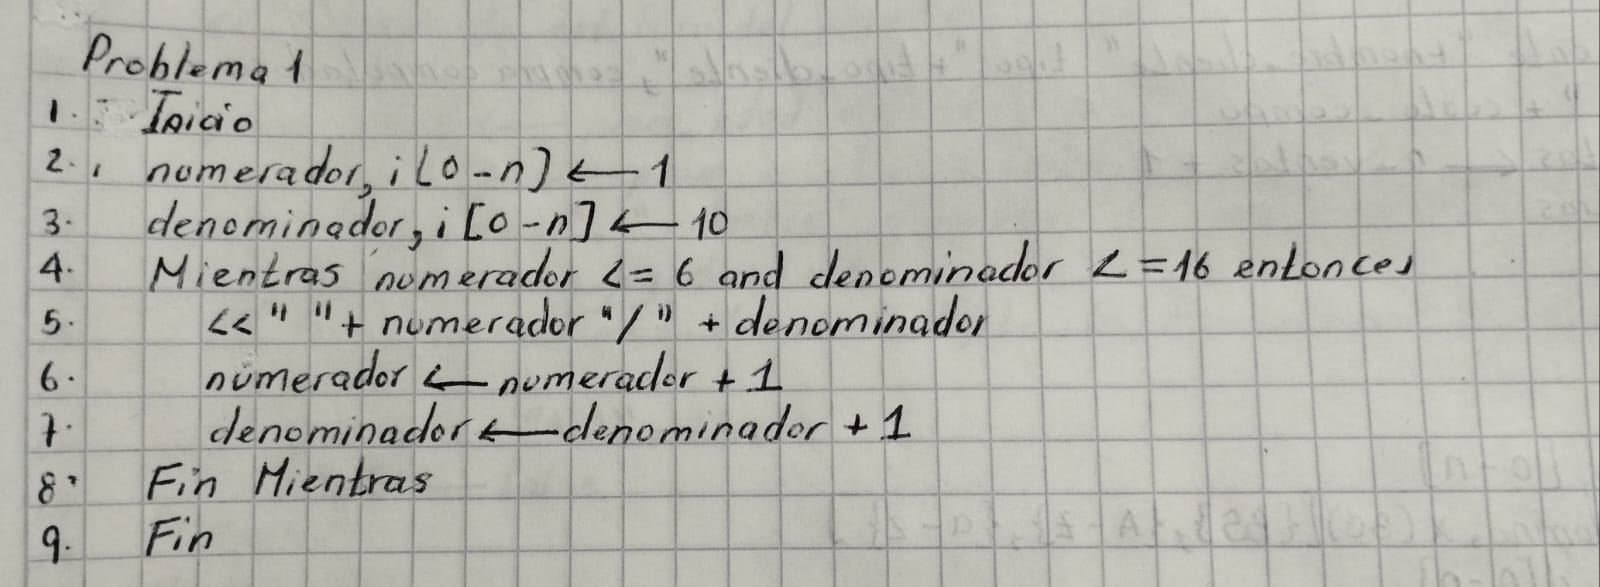 Problema 1
1. Inicio
2. numerador, i [0-n] ← 1
3. denominador, i [0-n] ← 10
4. Mientras numerador <= 6 and denominador <= 16 entonces
5. << " " + numerador "/" + denominador
6. numerador ← numerador + 1
7. denominador ← denominador + 1
8. Fin Mientras
9. Fin